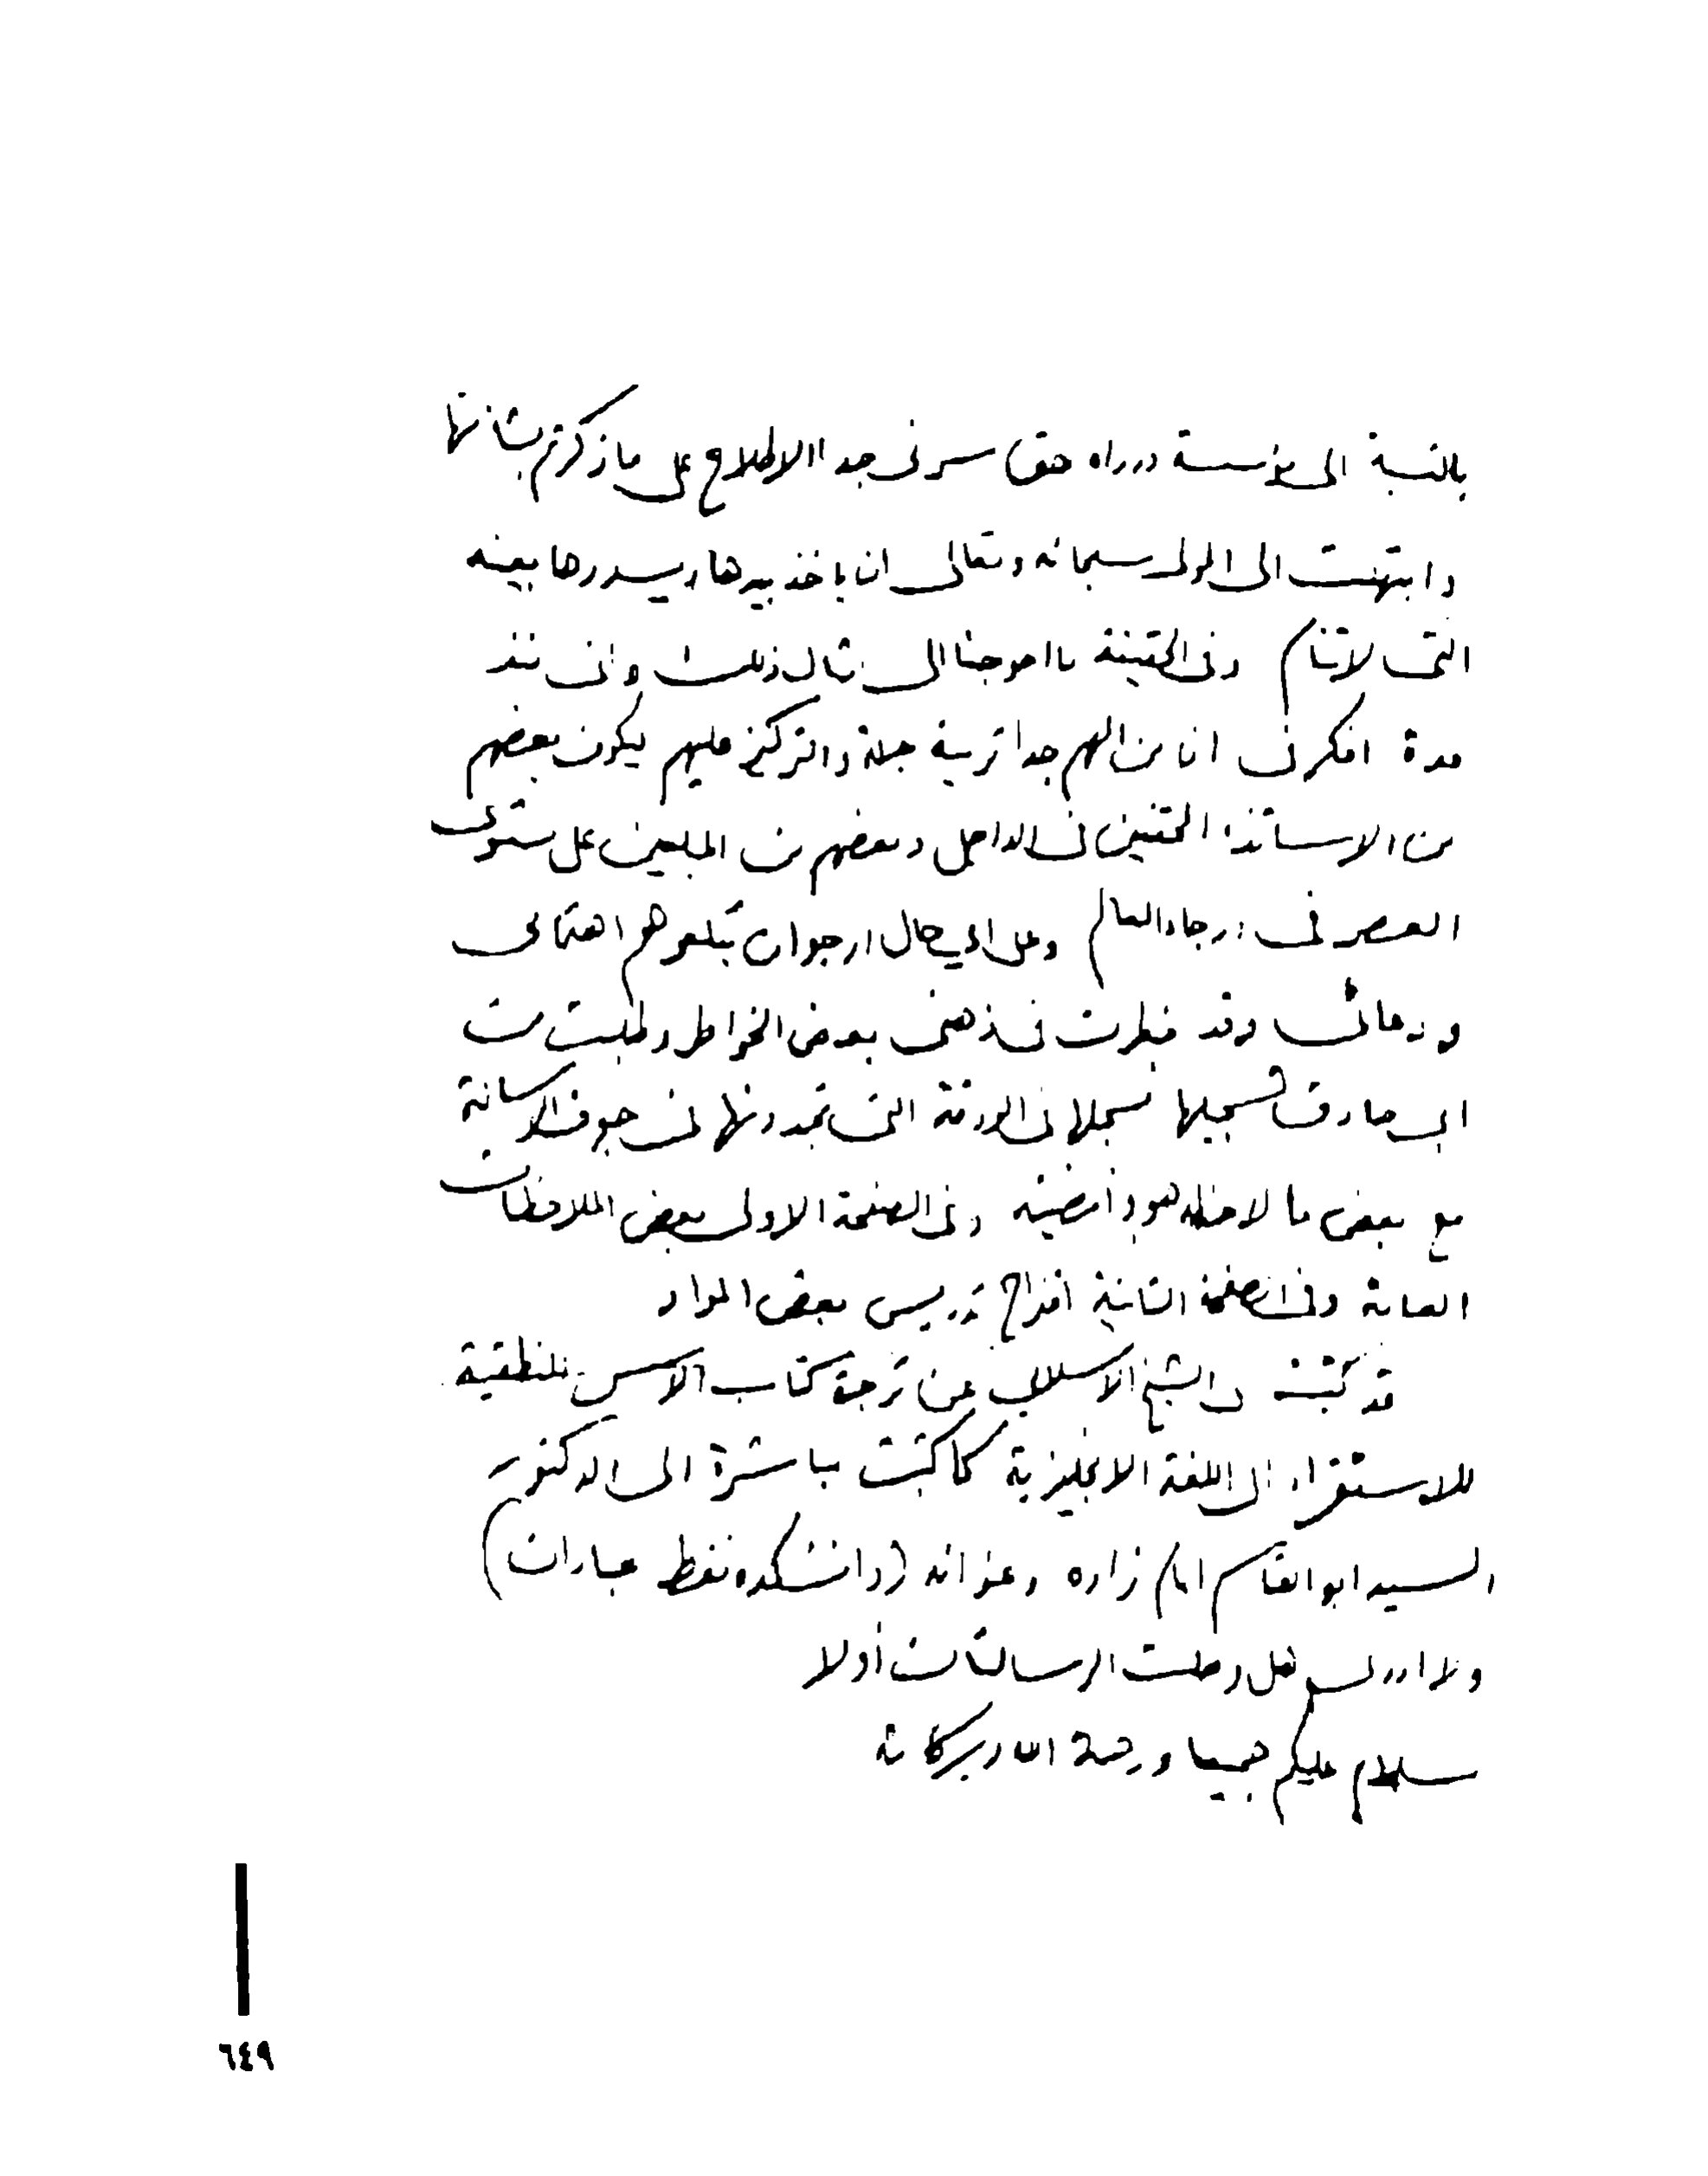 بالنسبة الى مؤسسة در راه حق سرنى جدا الاطلاع على ما ذكرتم بشأنها
وابتهلت الى المولى سبحانه وتعالى ان ياخذ بيدها ويسددها بعينه
التى لا تنام وفى الحقيقة ما احوجنا الى مثال ذلك وانى منذ
مدة افكر فى ان من المهم جدا تربية جملة والتركيز عليهم ليكون بعضهم
من الاساتذة المحققين فى الداخل وبعضهم من المبلغين على مستوى
العصر فى ارجاء العالم وعلى اي حال ارجو ان تبلغوهم اهتمامى
ودعائى وقد خطرت فى ذهنى بعض الخواطر وطلبت من
ابى صادق تسجيلها فسجلها فى الورقة التى تجدونها فى جوف الرسالة
مع بعض ما لاحظه هو وأمضيته وفى الصفحة الاولى بعض الملاحظات
العامة وفى الصفحة الثانية اقتراح تدريس بعض المواد
قد كتبت الى الشيخ الاسلامي عن ترجمة كتاب الاسس المنطقية
للاستقراء الى اللغة الانجليزية كما كتبت مباشرة الى الدكتور
السيد ابو القاسم امام زاده وعنوانه (دانشكده نفط عبادان)
ولا ادري هل وصلت الرسالتان أولا
سلام عليكم جميعا ورحمة الله وبركاته
٦٤٩